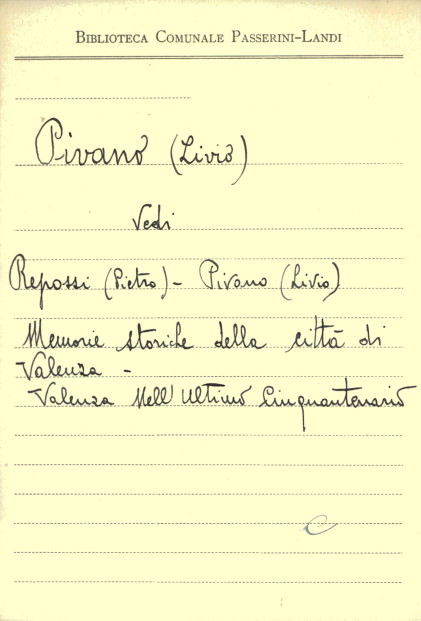 BIBLIOTECA COMUNALE PASSERINI-LANDI
Pivano (Livio)
Vedi
Repossi (Pietro) - Pivano (Livio)
Memorie storiche della città di
Valenza -
Valenza Nell'Ultimo Cinquantenario
C